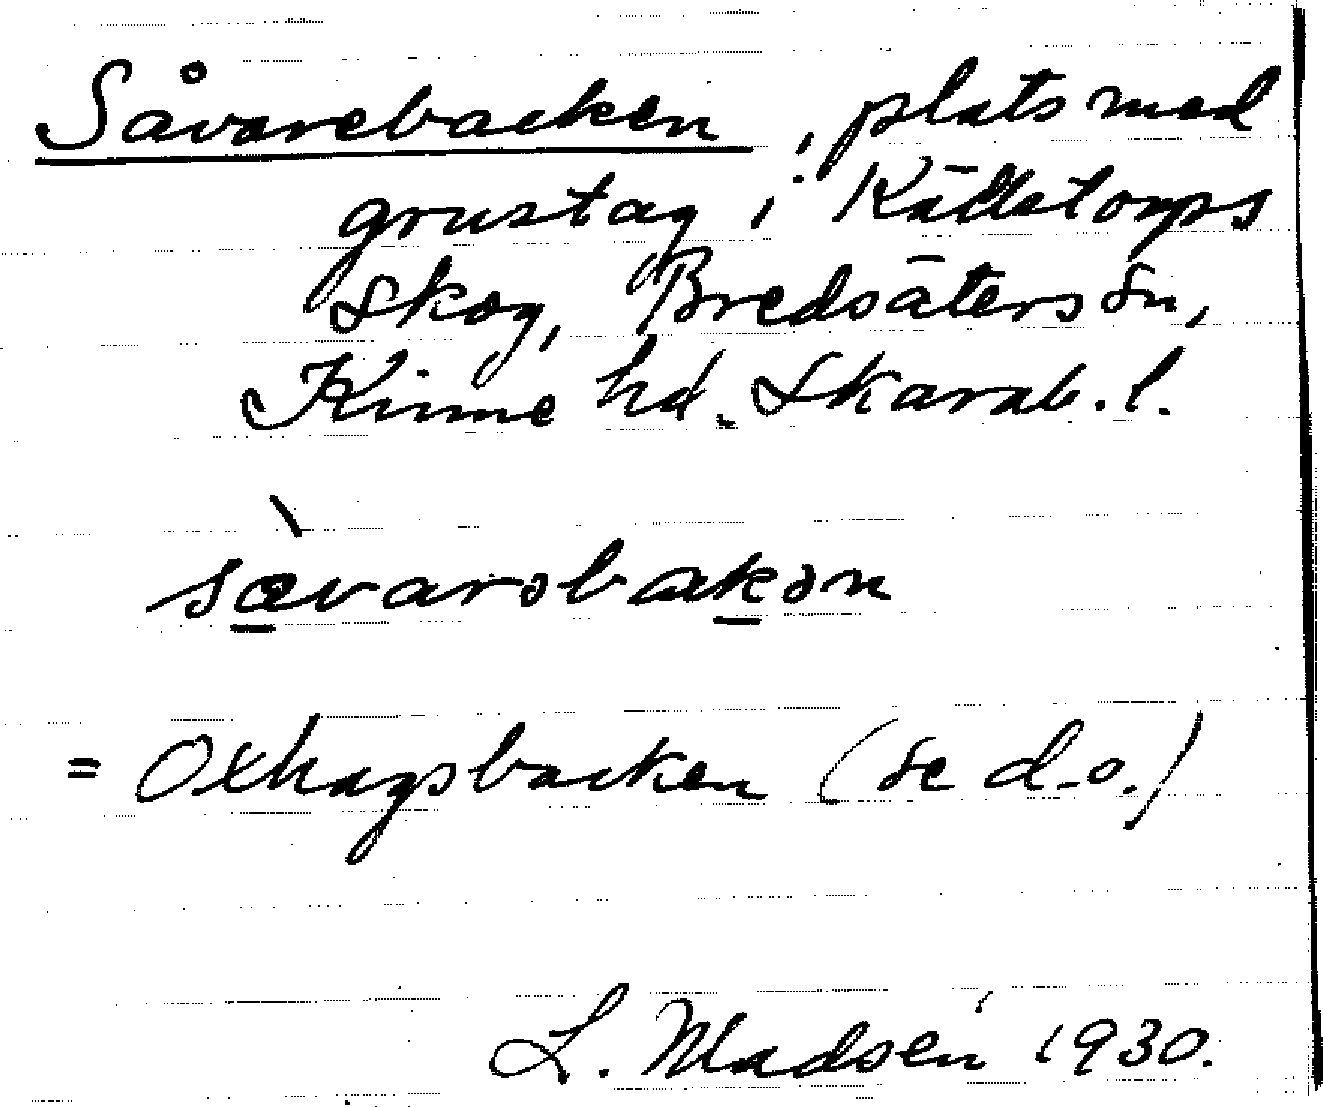 Såvarebacken, plats med
grustag i Källetorps
skog, Bredsäters sn,
Kinne hd. Skarab. l.
sàvarəbakən
= Oxhagsbacken (se d.o.)
L. Madsén 1930.